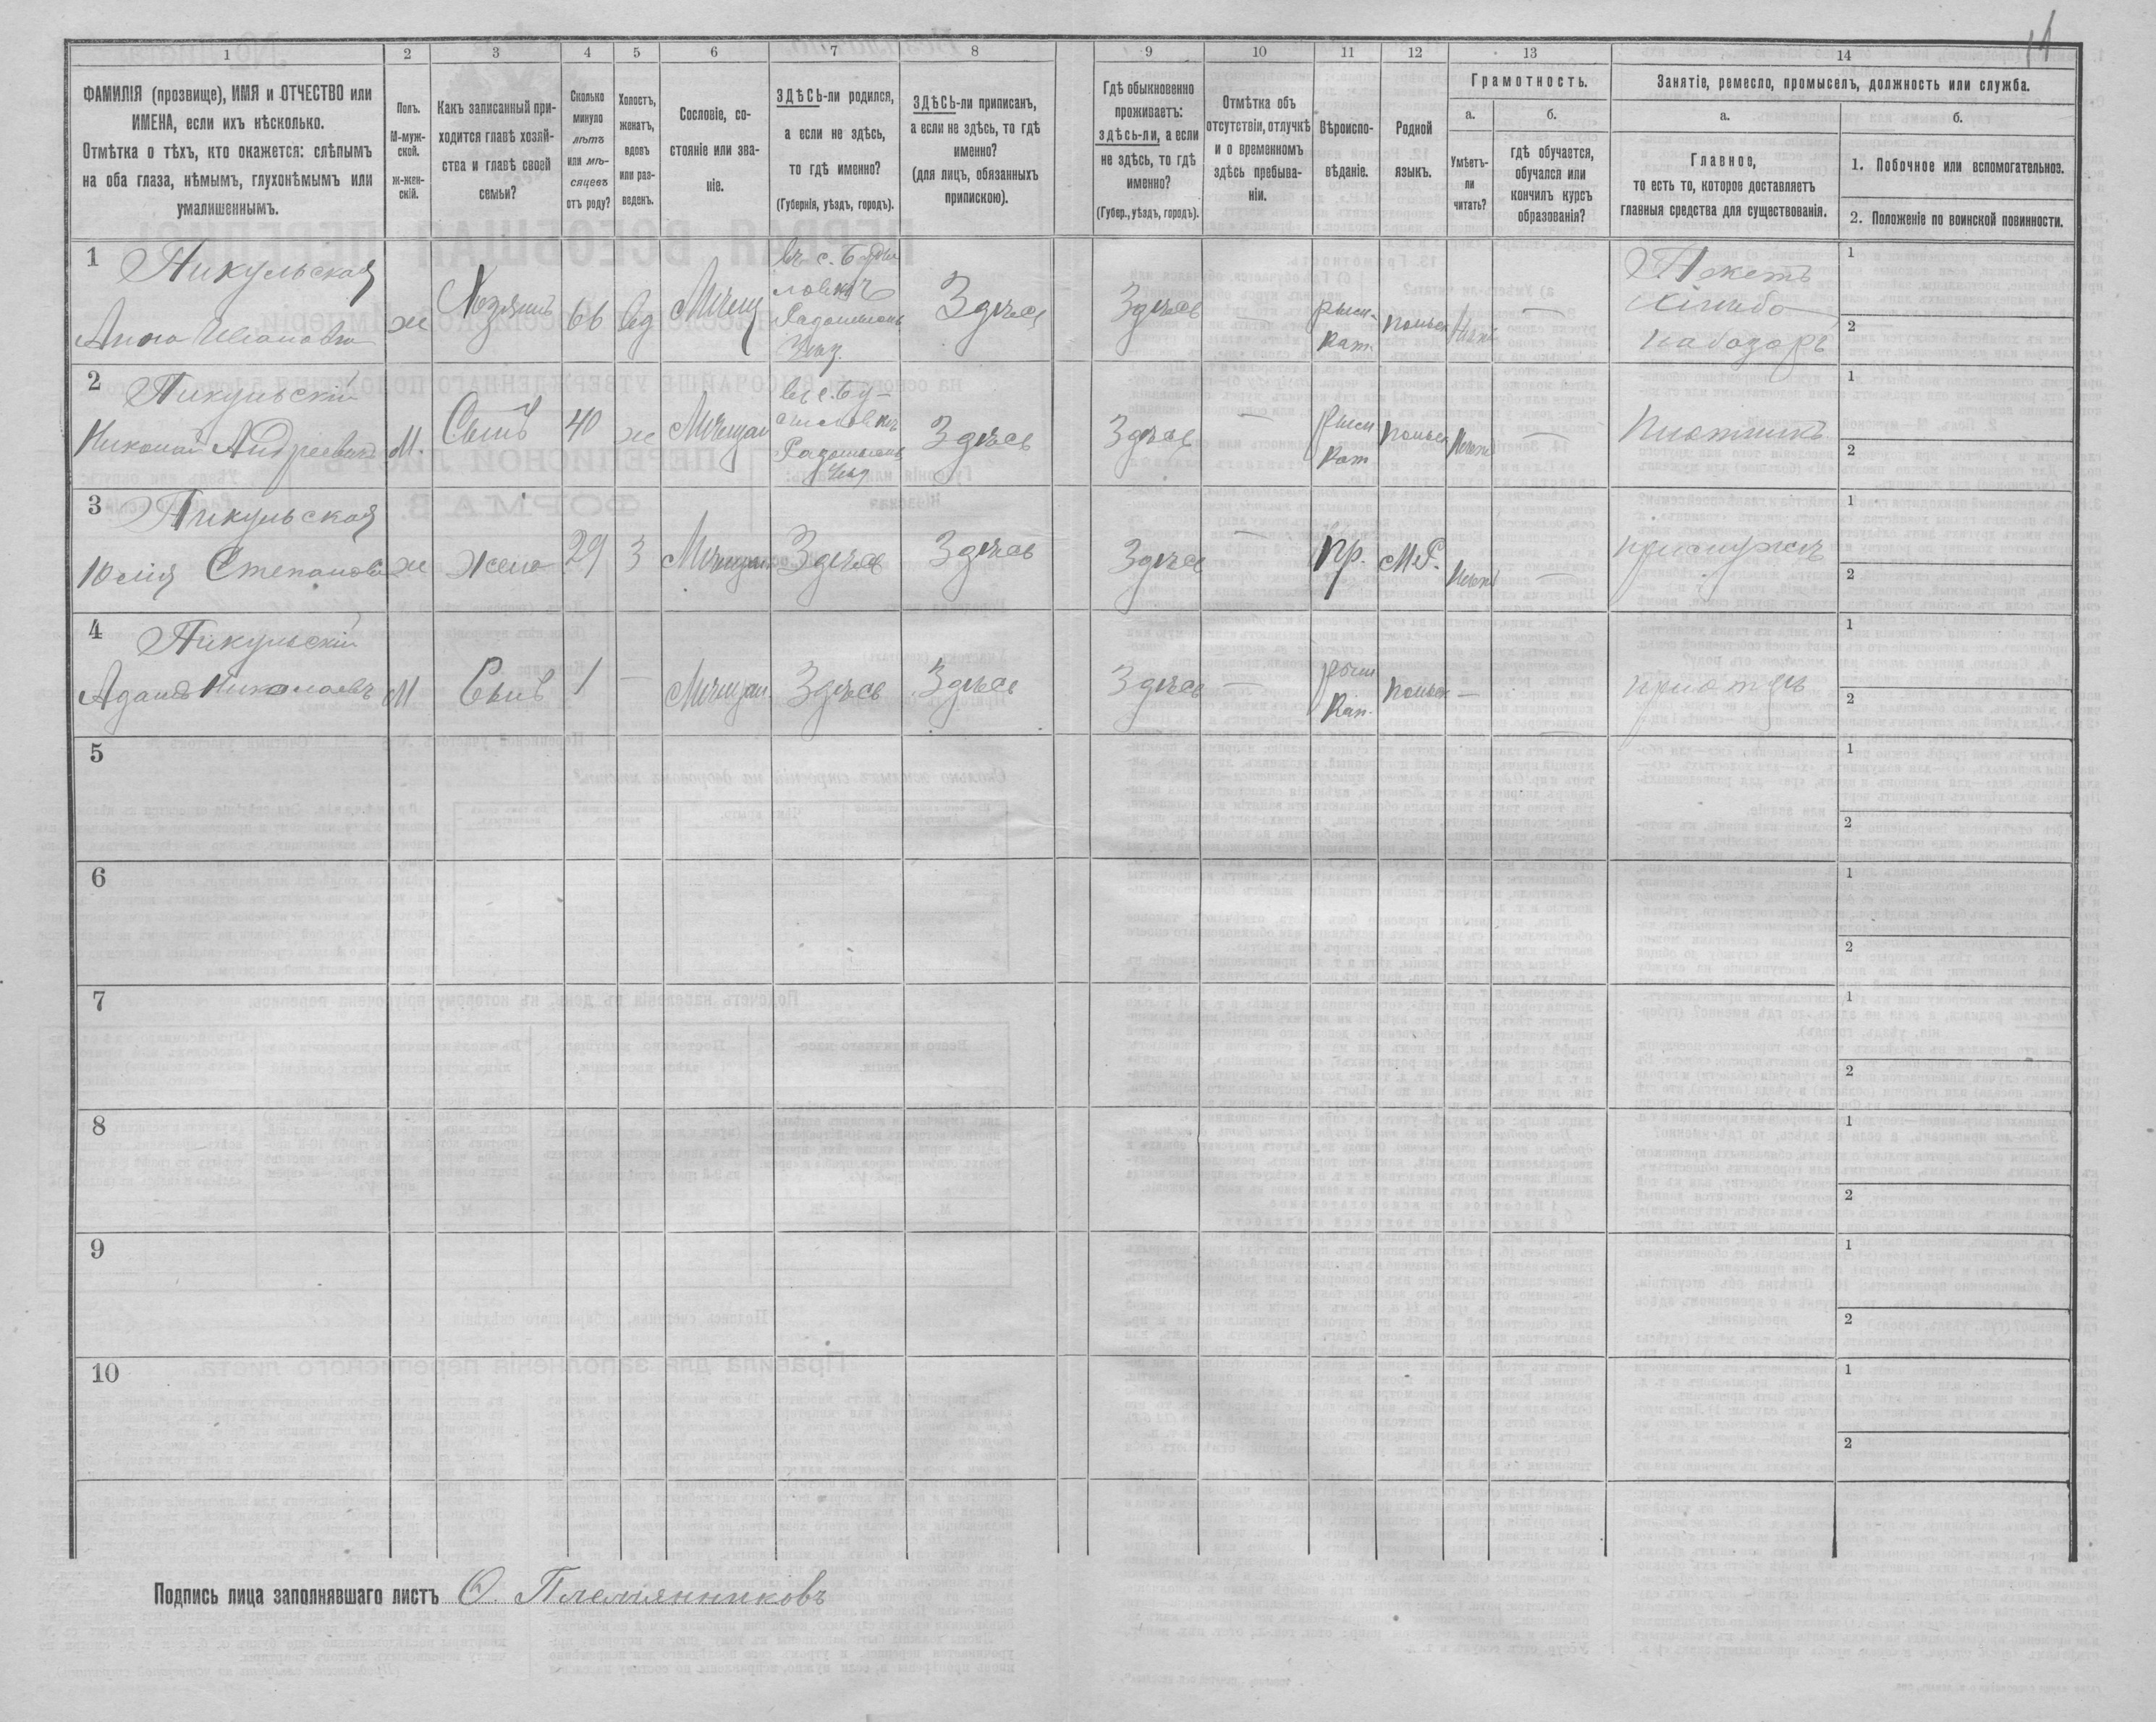 14
1
2
3
4
5
6
7
8
9
10
11
12
13
14
ФАМИЛІЯ (прозвище), ИМЯ и ОТЧЕСТВО или
ИМЕНА, если ихъ нѣсколько.
Отмѣтка о тѣхъ, кто окажется: слѣпымъ
на оба глаза, нѣмымъ, глухонѣмымъ или
умалишеннымъ.
Полъ.
М-муж-
ской.
Ж-жен-
скій.
Какъ записанный при-
ходится главѣ хозяй-
ства и главѣ своей
семьи?
Сколько
минуло
лѣтъ
или мѣ-
сяцевъ
отъ роду?
Холостъ,
женатъ,
вдовъ
или раз-
веденъ.
Сословіе, со-
стояніе или зва-
ніе.
ЗДѢСЬ-ли родился,
а если не здѣсь,
то гдѣ именно?
(Губернія, уѣздъ, городъ).
ЗДѢСЬ-ли приписанъ,
а если не здѣсь, то гдѣ
именно?
(для лицъ, обязанныхъ
припискою).
Гдѣ обыкновенно
проживаетъ:
здѣсь-ли, а если
не здѣсь, то гдѣ
именно?
(Губер., уѣздъ, городъ).
Отмѣтка объ
отсутствіи, отлучкѣ
и о временномъ
здѣсь пребыва-
ніи.
Вѣроиспо-
вѣданіе.
Родной
языкъ.
Грамотность.
а.
Умѣетъ-
ли
читать?
б.
гдѣ обучается,
обучался или
кончилъ курсъ
образованія?
Занятіе, ремесло, промыселъ, должность или служба.
а.
Главное,
то есть то, которое доставляетъ
главныя средства для существованія.
б.
1. Побочное или вспомогательное.
2. Положеніе по воинской повинности.
1
Пикульская
Анна Ивановна
ж
Хозяинъ
66
вд
Мѣщ
въ с.
Радомысль
Уѣз.
Здѣсь
Здѣсь
—
рим.-
кат.
польск
—
Печетъ
хлѣбъ
на базаръ
1
2
2
Пикульскій
Николай Андреевичъ
М.
Сынъ
40
ж
Мѣщан
въ с.
Радомысль
Уѣзд
Здѣсь
Здѣсь
—
рим
кат
польск
—
Плотникъ
1
2
3
Пикульская
Юлія Степановна
ж
жена
29
З
Мѣщан
Здѣсь
Здѣсь
Здѣсь
—
Пр.
М.Р.
—
при мужѣ
1
2
4
Пикульскій
Адамъ Николаевъ
М
Сынъ
1
—
Мѣщан.
Здѣсь
Здѣсь
Здѣсь
—
рим
кат.
польск
—
—
при отцѣ
1
2
5
1
2
6
1
2
7
1
2
8
1
2
9
1
2
10
1
2
Подпись лица заполнявшаго листъ О. Племянниковъ